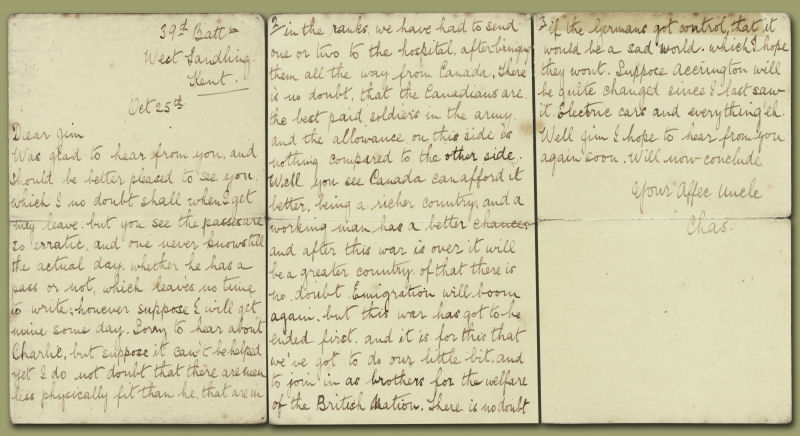 39th Battn
West Sandling
Kent.
Oct 25th
Dear Jim
Was glad to hear from you, and
should be better pleased to see you.
which I no doubt shall when I get
my leave. but you see the passes are
so erratic, and one never knows till
the actual day. whether he has a
pass or not, which leaves no time
to write; however suppose I will get
mine some day. Sorry to hear about
Charlie, but suppose it can't be helped
yet I do not doubt that there are men
less physically fit than he, that are in
2 in the ranks. we have had to send
one or two to the hospital, after bringing
them all the way from Canada, There
is no doubt, that the Canadians are
the best paid soldiers in the army.
and the allowance on this side is
nothing compared to the other side.
Well you see Canada can afford it
better, being a richer country, and a
working man has a better chances
and after this war is over it will
be a greater country. of that there is
no doubt. Emigration will boom
again. but this war has got to be
ended first. and it is for this that
we've got to do our little bit. and
to join in as brothers for the welfare
of the British Nation. There is no doubt
3 if the Germans got control, that it
would be a sad world. which I hope
they wont. Suppose Accrington will
be quite changed since I last saw
it. Electric cars and everything eh.
Well Jim I hope to hear from you
again soon. Will now conclude
Your Affec Uncle
Chas.